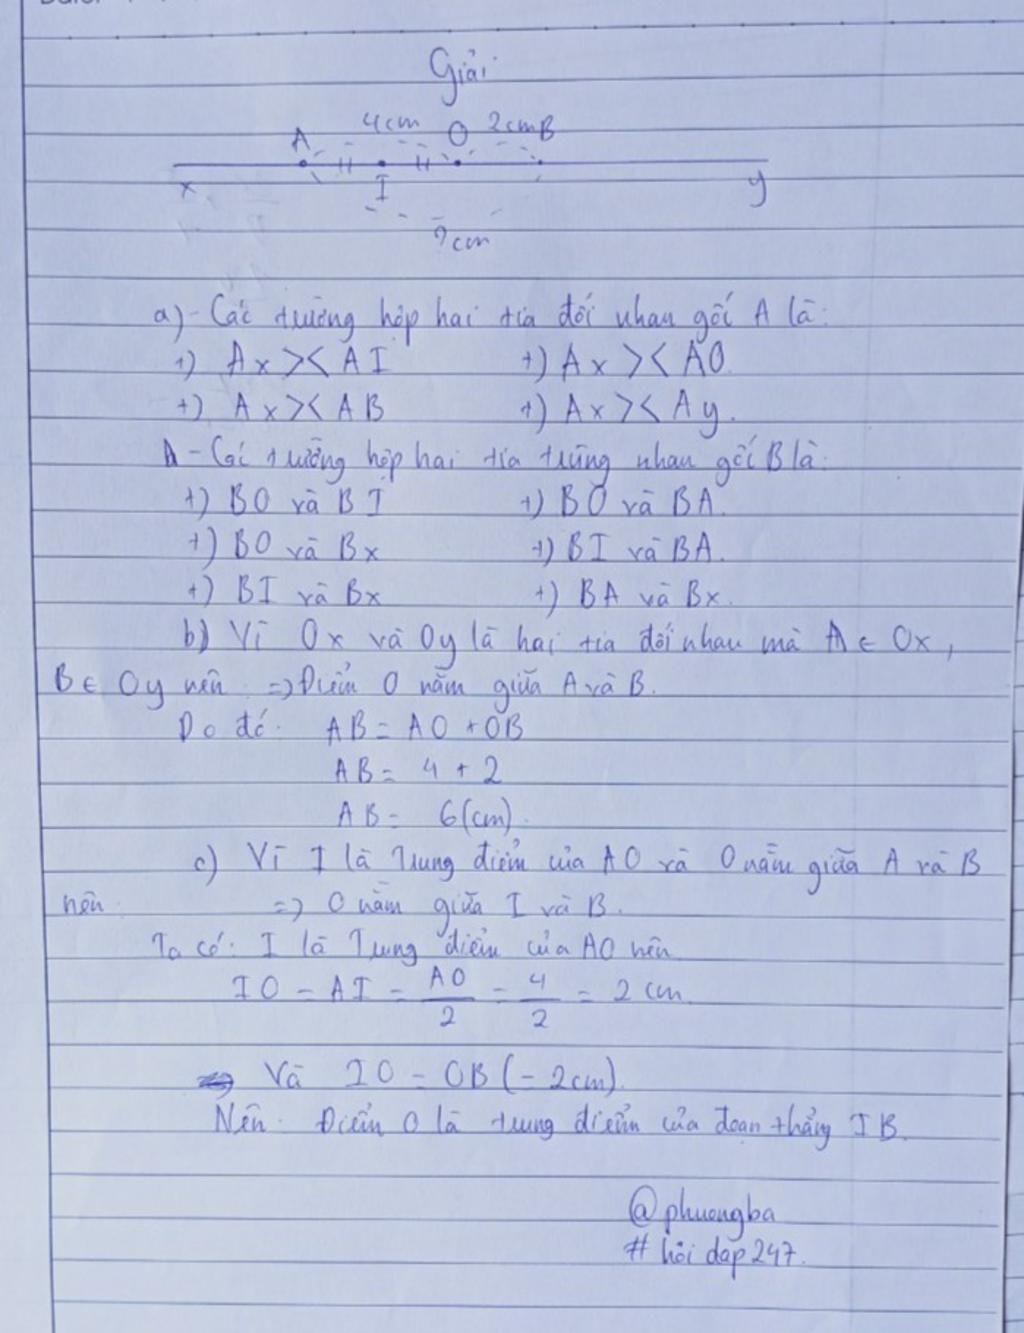 Giải
4cm 2cm
A O B
x I y
?cm
a) - Các trường hợp hai tia đối nhau gốc A là:
+) Ax >< AI +) Ax >< AO
+) Ax >< AB +) Ax >< Ay.
- Các trường hợp hai tia trùng nhau gốc B là:
+) BO và BI +) BO và BA.
+) BO và Bx +) BI và BA.
+) BI và Bx +) BA và Bx.
b) Vì Ox và Oy là hai tia đối nhau mà A ∈ Ox,
B ∈ Oy nên => Điểm O nằm giữa A và B.
Do đó: AB = AO + OB
AB = 4 + 2
AB = 6 (cm).
c) Vì I là Trung điểm của AO và O nằm giữa A và B
nên => O nằm giữa I và B.
Ta có: I là Trung điểm của AO nên
IO = AI = AO/2 = 4/2 = 2 cm
Và IO = OB (= 2cm).
Nên: Điểm O là trung điểm của đoạn thẳng IB.
@phuongba
# hỏi đáp 247.